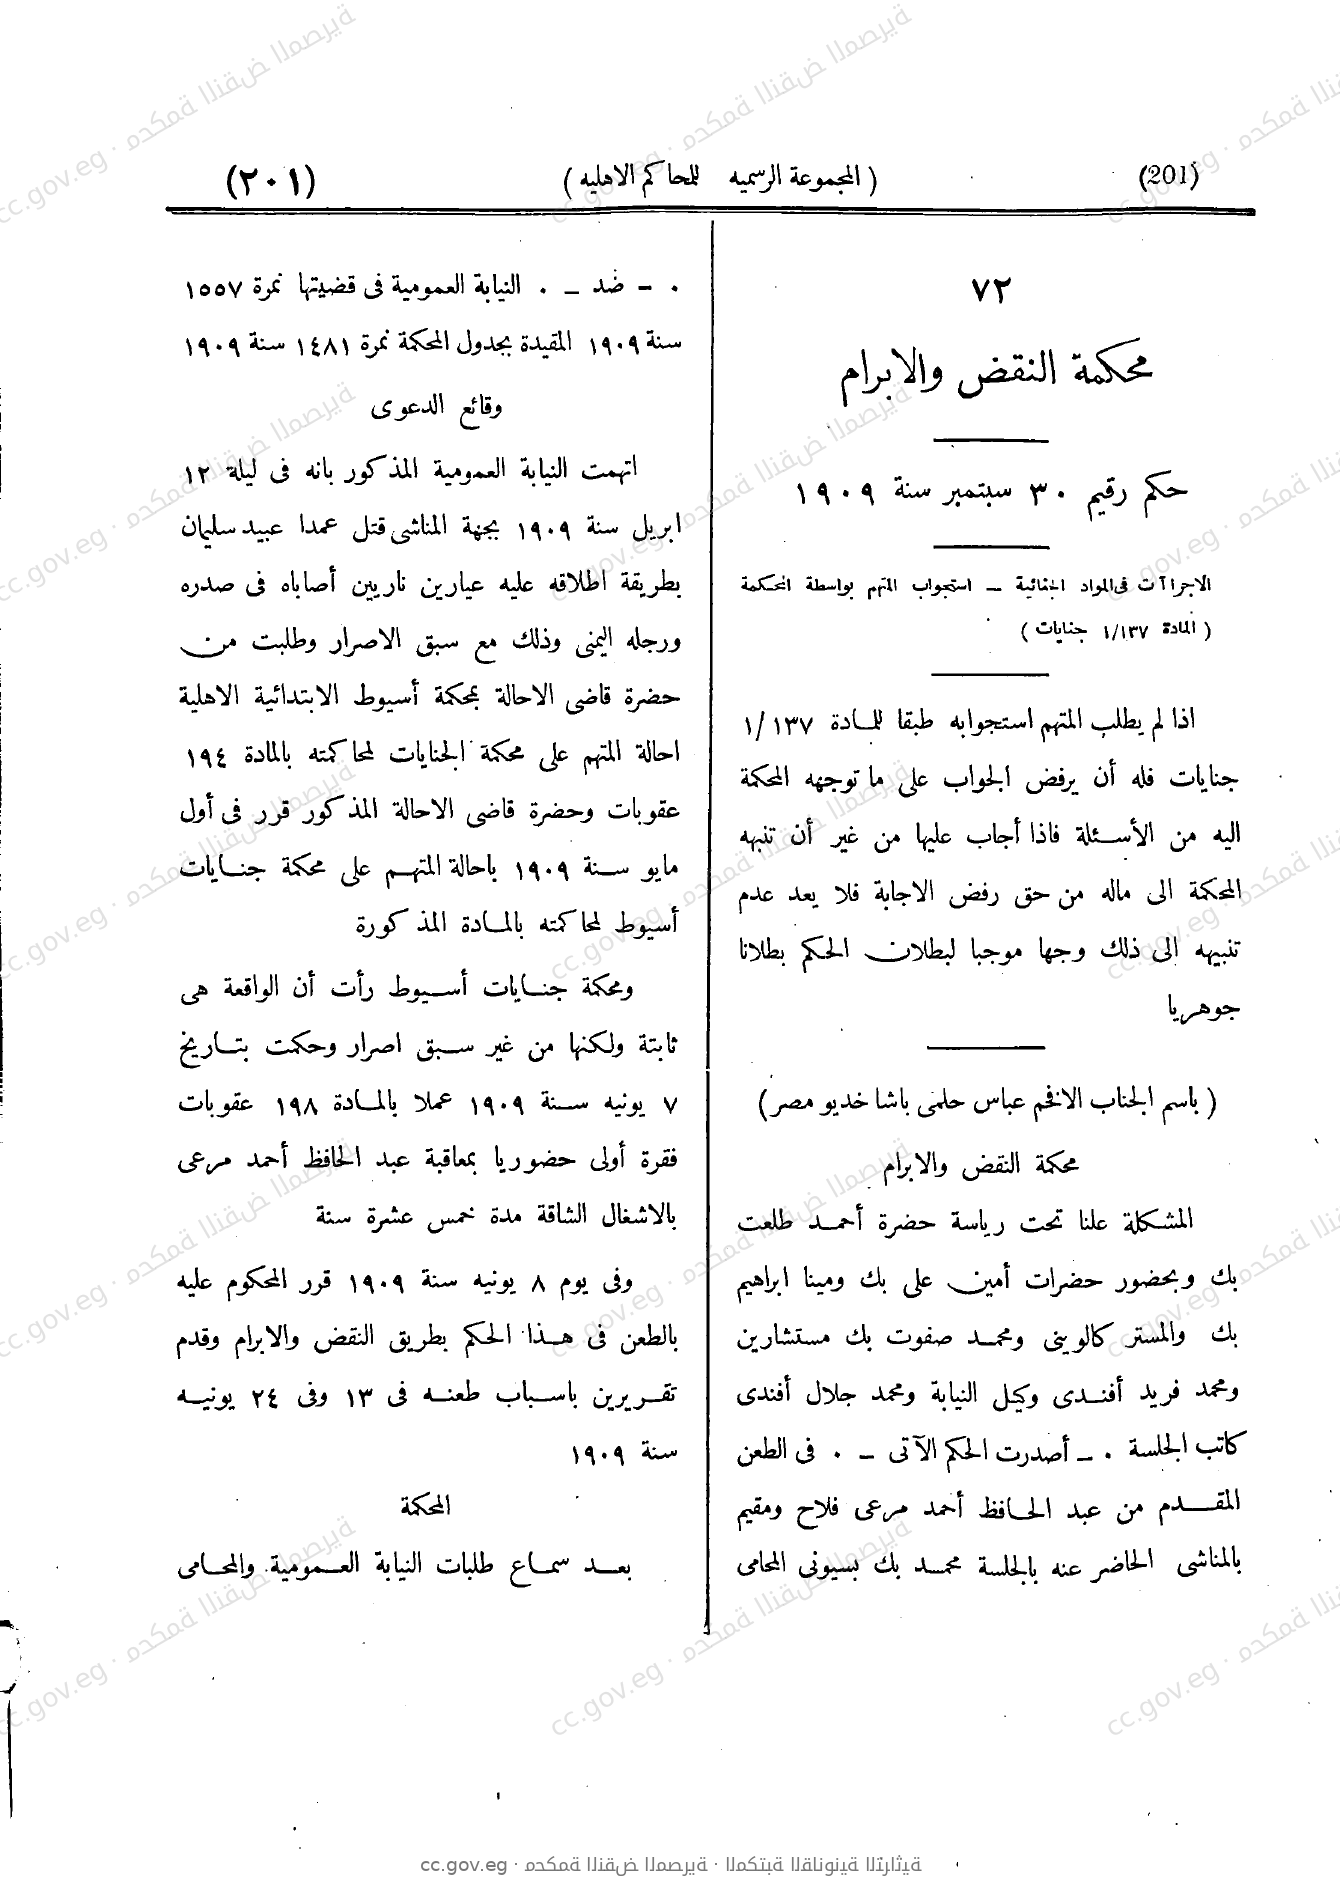 (201)
( المجموعة الرسميه للمحاكم الاهليه )
(٢٠١)
٧٢
محكمة النقض والابرام
حكم رقيم ٣٠ سبتمبر سنة ١٩٠٩
الاجراآت فى المواد الجنائية ــ استجواب المتهم بواسطة المحكمة
( المادة ١/١٣٧ جنايات )
اذا لم يطلب المتهم استجوابه طبقا للمادة ١/١٣٧
جنايات فله أن يرفض الجواب على ما توجهه المحكمة
اليه من الأسئلة فاذا أجاب عليها من غير أن تنبهه
المحكمة الى ماله من حق رفض الاجابة فلا يعد عدم
تنبيهه الى ذلك وجها موجبا لبطلان الحكم بطلانا
جوهريا
( باسم الجناب الافخم عباس حلمى باشا خديو مصر )
محكمة النقض والابرام
المشكلة علنا تحت رياسة حضرة أحمد طلعت
بك وبحضور حضرات أمين على بك ومينا ابراهيم
بك والمستر كالوينى ومحمد صفوت بك مستشارين
ومحمد فريد أفندى وكيل النيابة ومحمد جلال أفندى
كاتب الجلسة ٠ ــ أصدرت الحكم الآتى ــ ٠ فى الطعن
المقدم من عبد الحافظ أحمد مرعى فلاح ومقيم
بالمناشى الحاضر عنه بالجلسة محمد بك بسيونى المحامى
٠ ــ ضد ــ ٠ النيابة العمومية فى قضيتها نمرة ١٥٥٧
سنة ١٩٠٩ المقيدة بجدول المحكمة نمرة ١٤٨١ سنة ١٩٠٩
وقائع الدعوى
اتهمت النيابة العمومية المذكور بانه فى ليلة ١٢
ابريل سنة ١٩٠٩ بجهة المناشى قتل عمدا عبيد سليمان
بطريقة اطلاقه عليه عيارين ناريين أصاباه فى صدره
ورجله اليمنى وذلك مع سبق الاصرار وطلبت من
حضرة قاضى الاحالة بمحكمة أسيوط الابتدائية الاهلية
احالة المتهم على محكمة الجنايات لمحاكمته بالمادة ١٩٤
عقوبات وحضرة قاضى الاحالة المذكور قرر فى أول
مايو سنة ١٩٠٩ باحالة المتهم على محكمة جنايات
أسيوط لمحاكمته بالمادة المذكورة
ومحكمة جنايات أسيوط رأت أن الواقعة هى
ثابتة ولكنها من غير سبق اصرار وحكمت بتاريخ
٧ يونيه سنة ١٩٠٩ عملا بالمادة ١٩٨ عقوبات
فقرة أولى حضوريا بمعاقبة عبد الحافظ أحمد مرعى
بالاشغال الشاقة مدة خمس عشرة سنة
وفى يوم ٨ يونيه سنة ١٩٠٩ قرر المحكوم عليه
بالطعن فى هذا الحكم بطريق النقض والابرام وقدم
تقريرين باسباب طعنه فى ١٣ وفى ٢٤ يونيه
سنة ١٩٠٩
المحكمة
بعد سماع طلبات النيابة العمومية والمحامى
cc.gov.eg · محكمة النقض المصرية · المكتبة القانونية التراثية